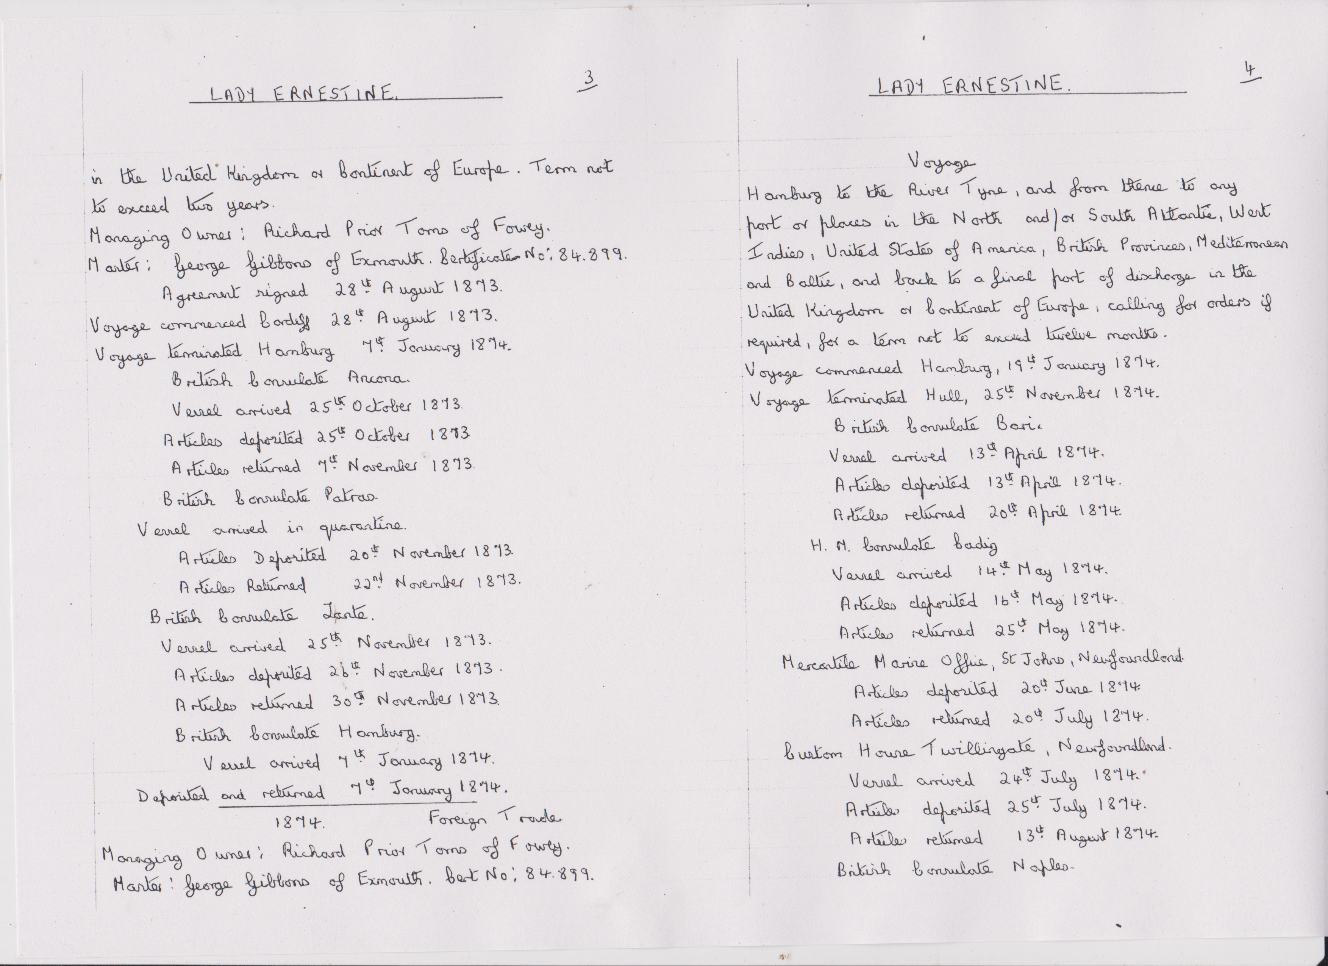 3
LADY ERNESTINE.
in the United Kingdom or Continent of Europe. Term not
to exceed two years.
Managing Owner: Richard Prior Toms of Fowey.
Master: George Gibbons of Exmouth. Certificate No: 84.899.
Agreement signed 28th August 1873.
Voyage commenced Cardiff 28th August 1873.
Voyage terminated Hamburg 7th January 1874.
British Consulate Ancona.
Vessel arrived 25th October 1873
Articles deposited 25th October 1873
Articles returned 7th November 1873.
British Consulate Patras
Vessel arrived in quarantine.
Articles Deposited 20th November 1873
Articles Returned 22nd November 1873.
British Consulate Zante.
Vessel arrived 25th November 1873.
Articles deposited 26th November 1873.
Articles returned 30th November 1873.
British Consulate Hamburg.
Vessel arrived 7th January 1874.
Deposited and returned 7th January 1874.
1874. Foreign Trade
Managing Owner: Richard Prior Toms of Fowey.
Master: George Gibbons of Exmouth. Cert No: 84.899.
4
LADY ERNESTINE.
Voyage
Hamburg to the River Tyne, and from thence to any
port or places in the North and/or South Atlantic, West
Indies, United States of America, British Provinces, Mediterranean
and Baltic, and back to a final port of discharge in the
United Kingdom or Continent of Europe, calling for orders if
required, for a term not to exceed twelve months.
Voyage commenced Hamburg, 19th January 1874.
Voyage terminated Hull, 25th November 1874.
British Consulate Bari.
Vessel arrived 13th April 1874.
Articles deposited 13th April 1874.
Articles returned 20th April 1874.
H. M. Consulate Cadiz
Vessel arrived 14th May 1874.
Articles deposited 16th May 1874.
Articles returned 25th May 1874.
Mercantile Marine Office, St Johns, Newfoundland.
Articles deposited 20th June 1874.
Articles returned 20th July 1874.
Custom House Twillingate, Newfoundland.
Vessel arrived 24th July 1874.
Articles deposited 25th July 1874.
Articles returned 13th August 1874.
British Consulate Naples.